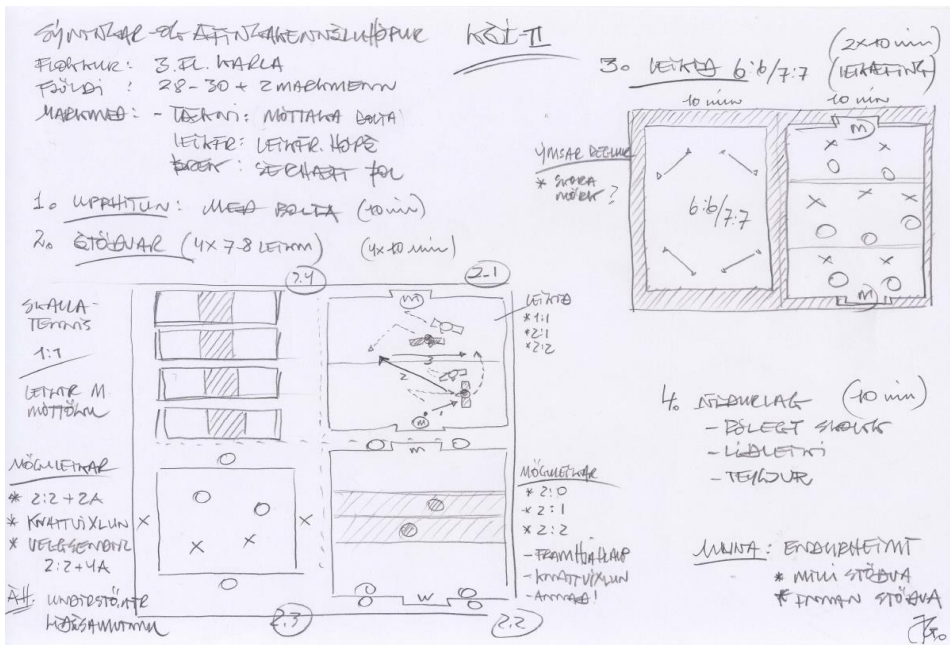 KSÍ-II
FLOKKUR: 3. FL. KARLA
FJÖLDI: 28-30 + 2 MARKMENN
MARKMIÐ: - TÆKNI: MÓTTAKA BOLTA
LEIKFR: LEIKFR. HÓPS
ÞREK: SÉRHÆFT ÞOL
1. UPPHITUN: MEÐ BOLTA (10 min)
2. STÖÐVAR (4x 7-8 LEIKM) (4x10 min)
2.4
2.1
SKALLA-
TENNIS
1:1
LEIKIR M
MÓTTÖKU
M
1
2
3
M
LEIKIÐ
* 1:1
* 2:1
* 2:2
MÖGULEIKAR
* 2:2 + 2A
* KNATTVÍXLUN
* VEGGSENDING
2:2 + 4A
2.3
M
MÖGULEIKAR
* 2:0
* 2:1
* 2:2
- FRAMHJÁHLAUP
- KNATTVÍXLUN
- ANNAÐ!
2.2
3. LEIKIÐ 6:6/7:7
(2x10 min)
(LEIKÆFING)
10 min
10 min
ÝMSAR REGLUR
* SKORA
MÖRK?
6:6/7:7
M
M
4. NIÐURLAG (10 min)
- RÓLEGT SKOKK
- LIÐLEIKI
- TEYGJUR
MUNA: ENDURHEIMT
* MILLI STÖÐVA
* INNAN STÖÐVA